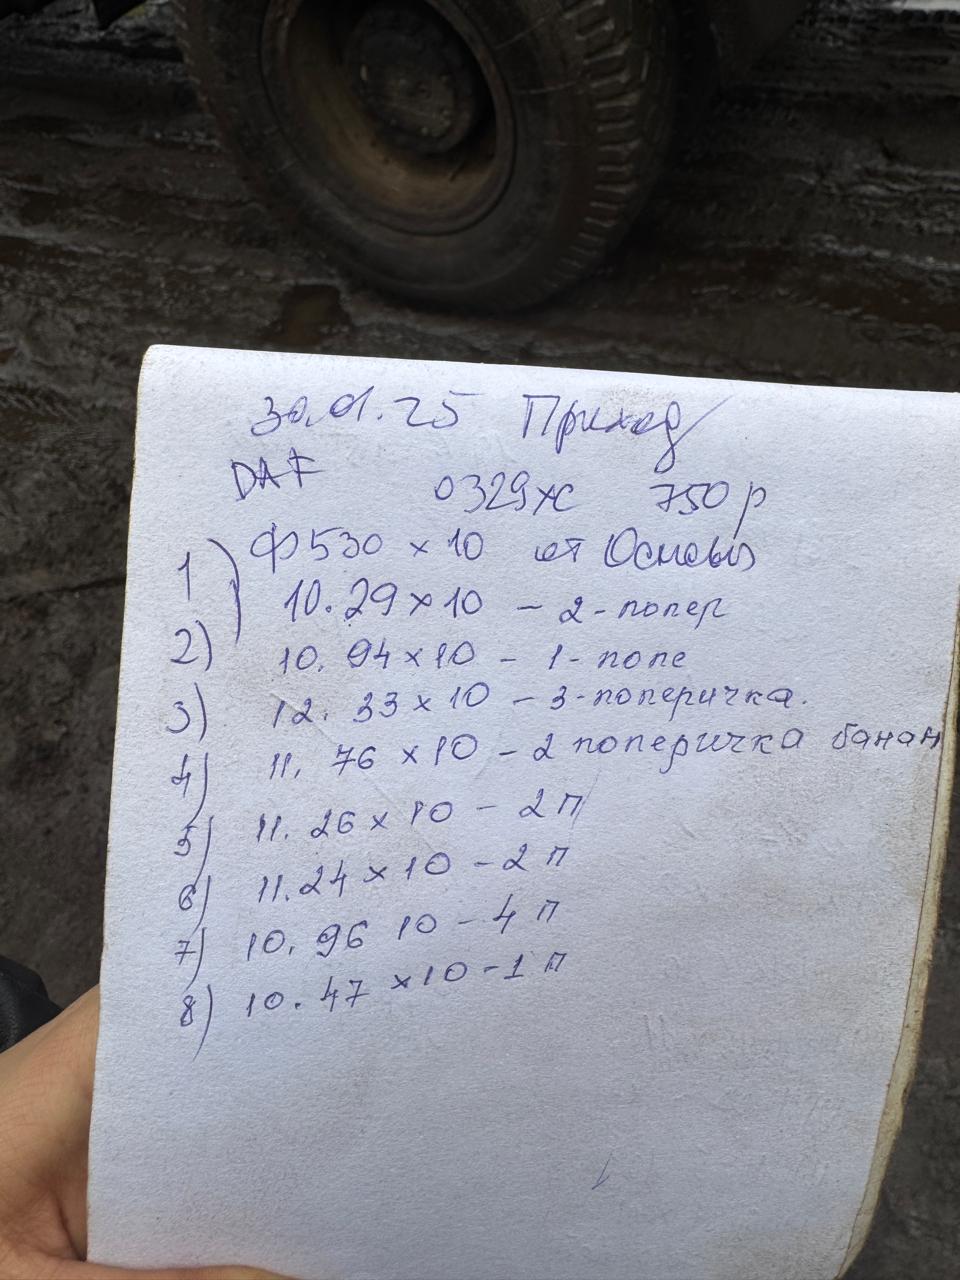 30.01.25 Приход
DAF 0329ж 750 р
Ф530 × 10 от Основы
1) 10.29×10 – 2-попер
2) 10.94×10 – 1-попе
3) 12.33×10 – 3-поперичка.
4) 11.76×10 – 2 поперичка банан
5) 11.26×10 – 2 п
6) 11.24×10 – 2 п
7) 10.96 10 – 4 п
8) 10.47×10 – 1 п